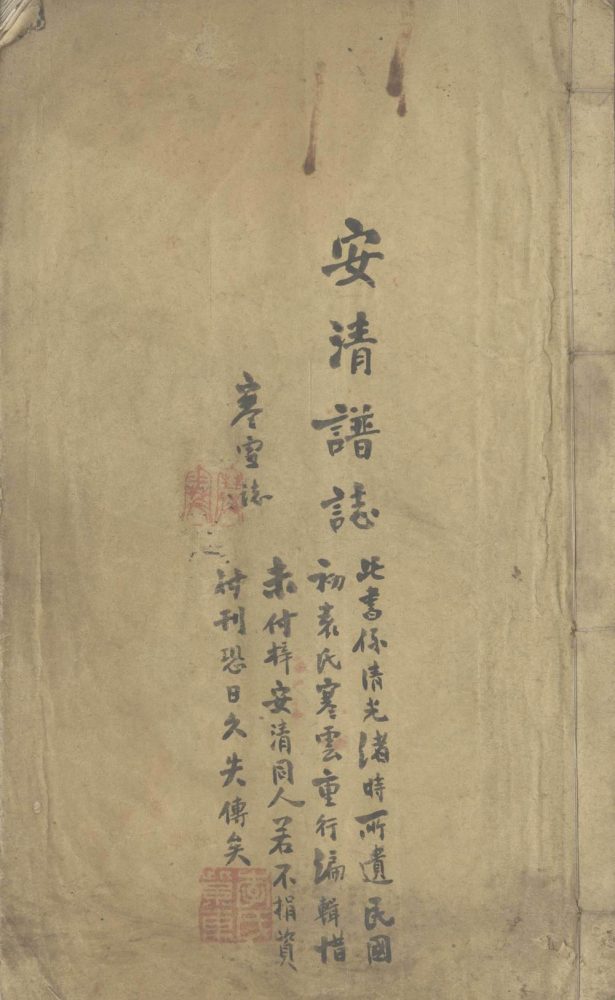 安清譜誌
此書係清光緒時所遺民國
初袁氏寒雲重行編輯惜
未付梓安清同人若不捐資
付刊恐日久失傳矣
寒雲誌